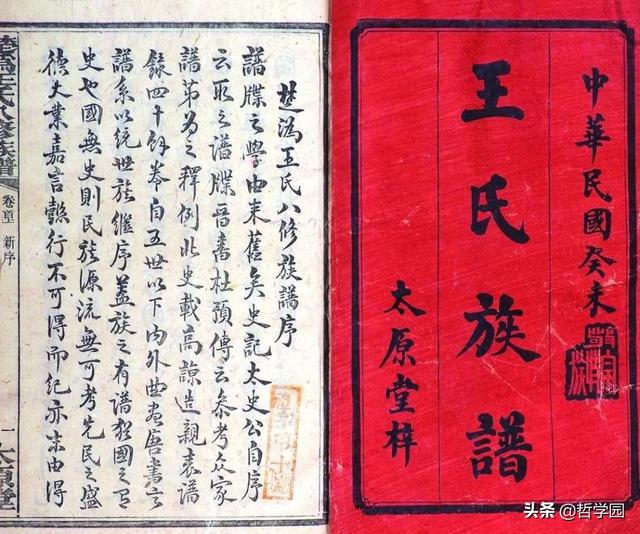 中華民國癸未
王氏族譜
太原堂梓
楚溈王氏八修族譜序
譜牒之學由来舊矣史記太史公自序
云取之譜牒晉書杜預傳云参考众家
譜第為之釋例北史載高諒造親表譜
錄四十餘卷自五世以下内外曲盡唐書言
譜系以統世族继序蓋族之有譜猶國之有
史也國無史則民族源流無可考先民之盛
德大業嘉言懿行不可得而紀亦末由得
王氏八修族譜
新序
一
太原堂
头条 @哲学园